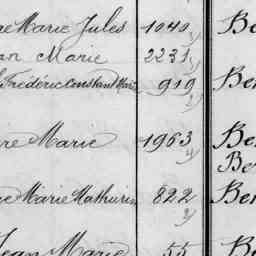 re Marie Jules 1040 Be
an Marie 2231
Frédéric Constant Marie 919 Ber
re Marie 1963 Be
Be
e Marie Mathurin 822 Ber
Jean Marie 55 B